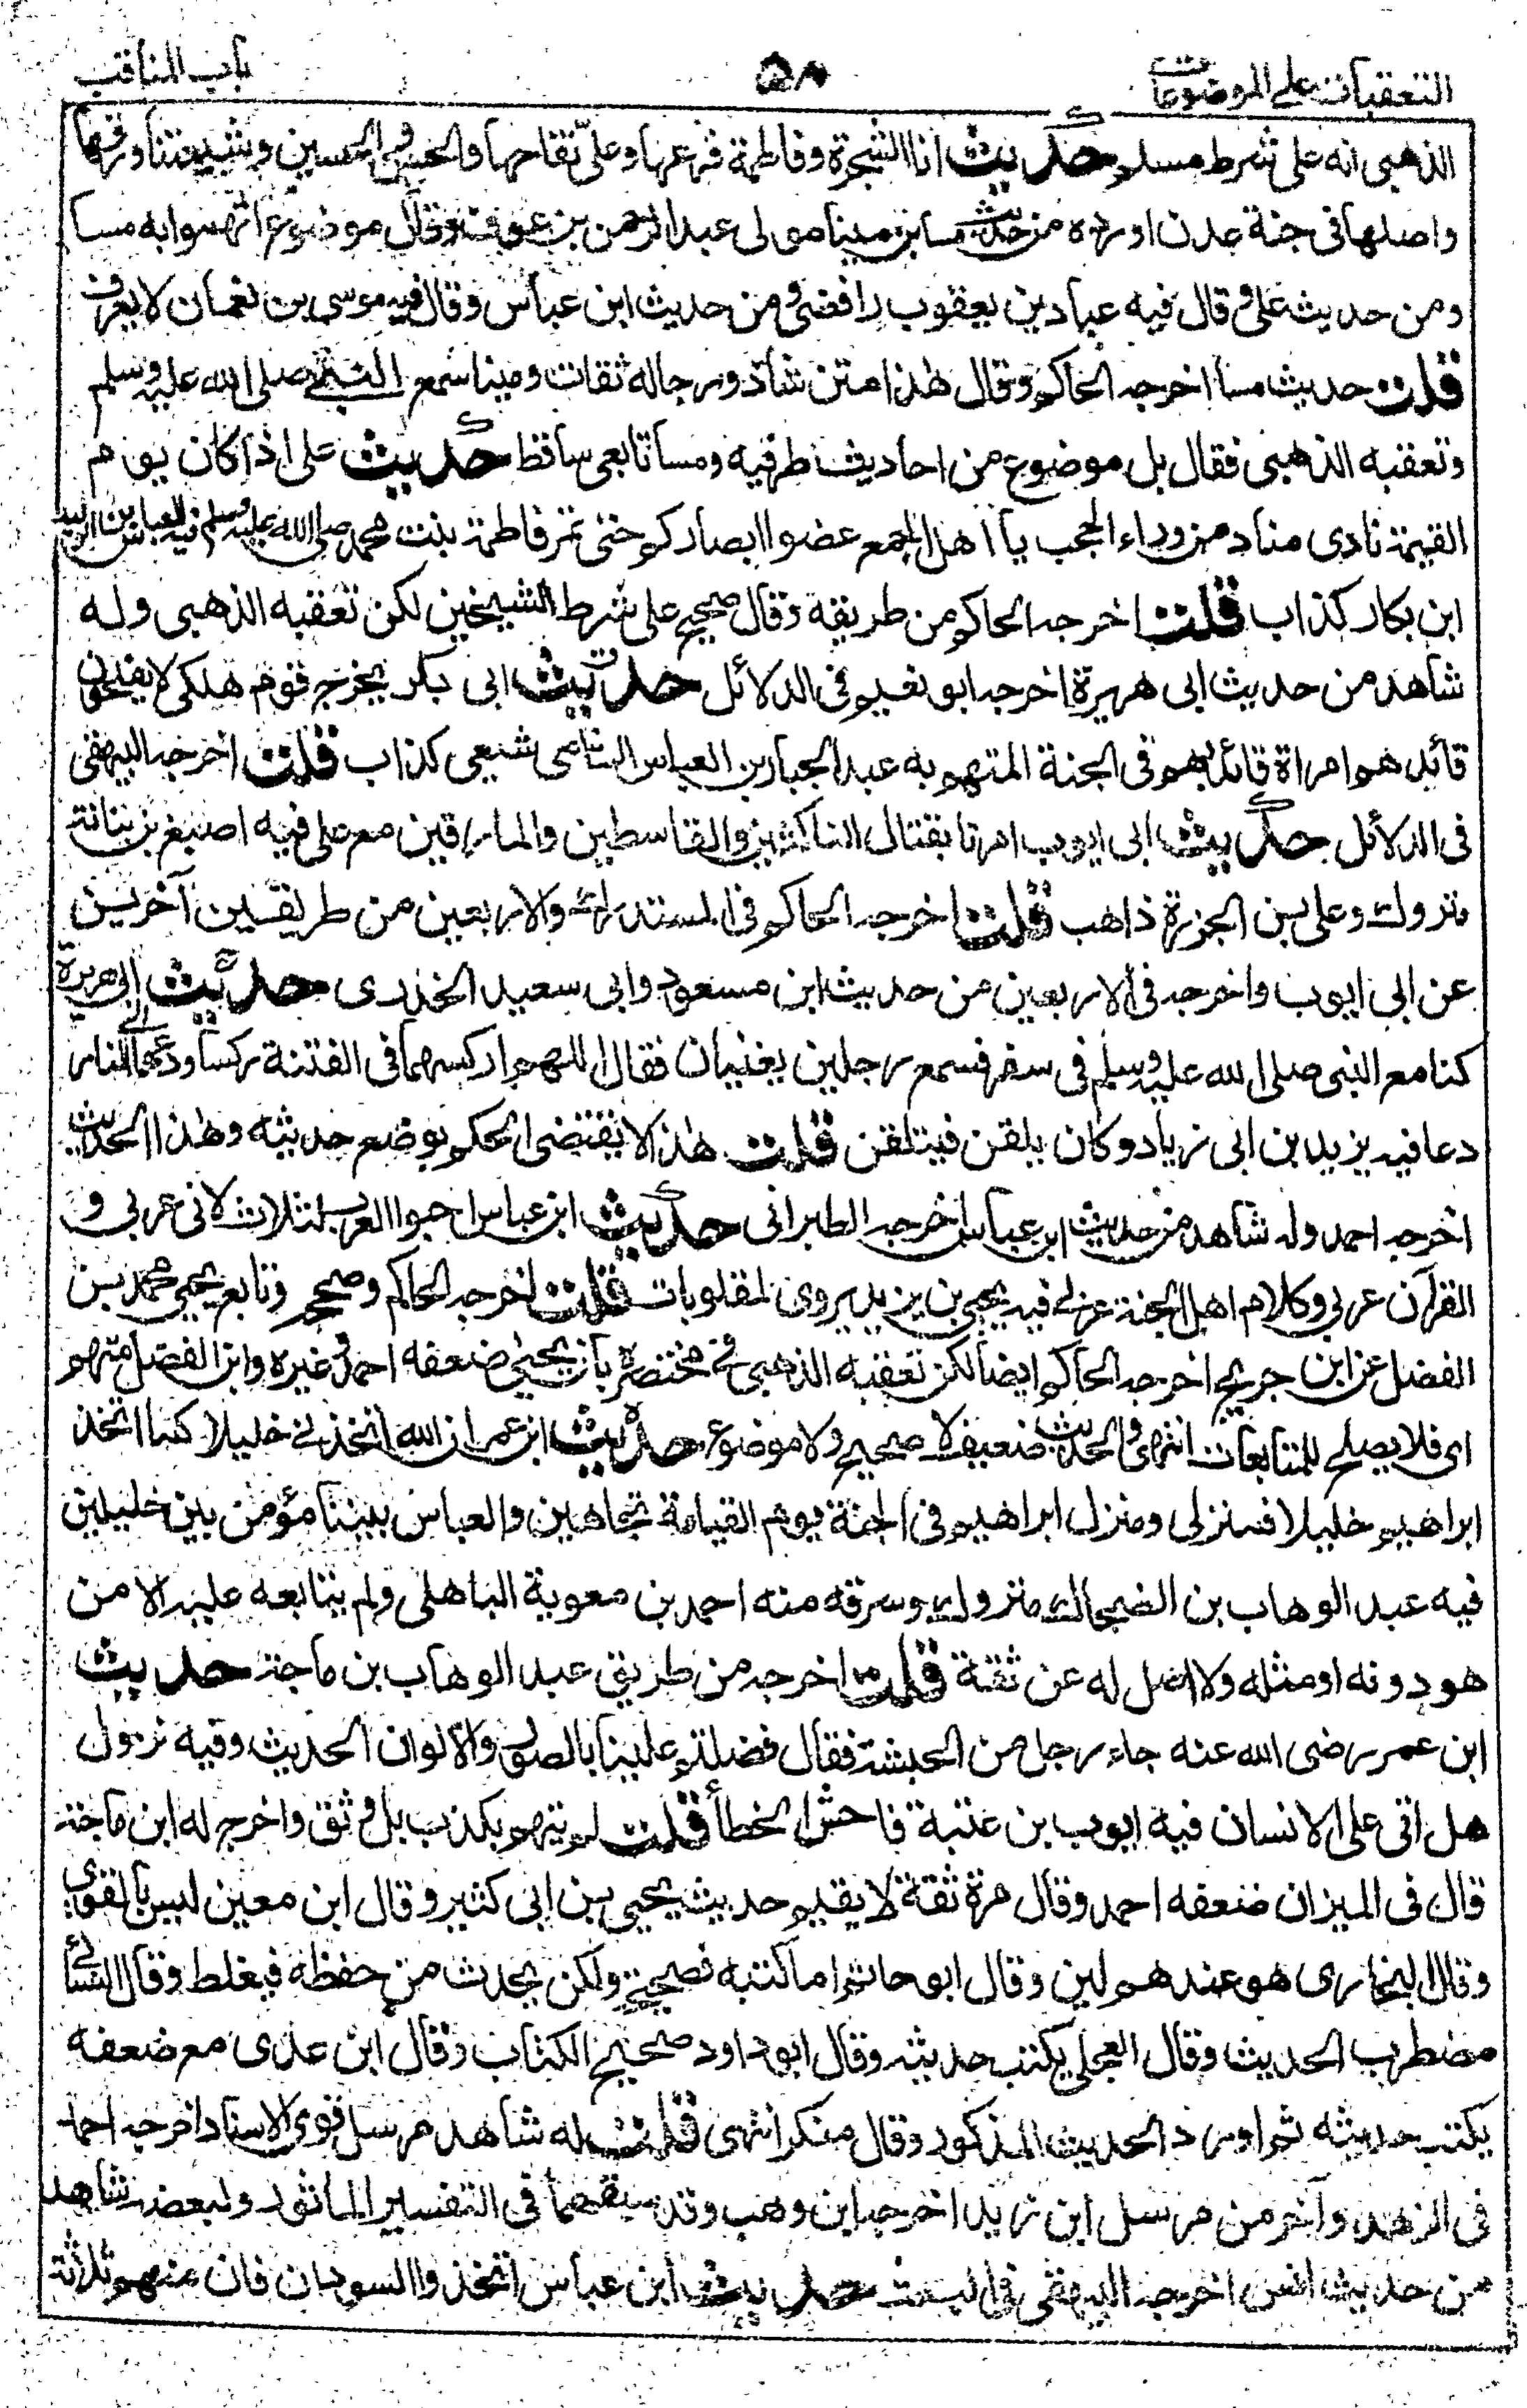 التعقبات على الموضوعات ٥٨ باب المناقب
الذهبى انه على شرط مسلم حديث انا الشجرة وفاطمة فرعها وعلىّ لقاحها والحسن والحسين وشيعتنا ورقها
واصلها فى جنة عدن اورده من حديث مينا بن مينا مولى عبد الرحمن بن عوف وقال موضوع اتهموا به مينا
ومن حديث على وقال فيه عباد بن يعقوب رافضى ومن حديث ابن عباس وقال فيه موسى بن نعمان لا يعرف
قلت حديث مينا اخرجه الحاكم وقال هذا متن شاذ ورجاله ثقات ومينا سمع النبى صلى الله عليه وسلم
وتعقبه الذهبى فقال بل موضوع من احاديث طرقيه ومينا تابعى ساقط حديث على اذا كان يوم
القيمة نادى مناد من وراء الحجب يا اهل الجمع غضوا ابصاركم حتى تمر فاطمة بنت محمد صلى الله عليه وسلم فيه العباس بن الوليد
ابن بكار كذاب قلت اخرجه الحاكم من طريقه وقال صحيح على شرط الشيخين لكن تعقبه الذهبى وله
شاهد من حديث ابى هريرة اخرجه ابو نعيم فى الدلائل حديث ابى بكر يخرج قوم هلكى لا يفلحون
قائدهم امراة قائدهم فى الجنة المتهم به عبد الجبار بن العباس الشامى شيعى كذاب قلت اخرجه البيهقى
فى الدلائل حديث ابى ايوب امرنا بقتال الناكثين والقاسطين والمارقين مع على فيه اصبغ بن نباتة
متروك وعلى بن الحزورة ذاهب قلت اخرجه الحاكم فى المستدرك والاربعين من طريقين آخرين
عن ابى ايوب واخرجه فى الاربعين من حديث ابن مسعود وابى سعيد الخدرى حديث ابى هريرة
كنا مع النبى صلى الله عليه وسلم فى سفر فسمع رجلين يغنيان فقال اللهم اركسهما فى الفتنة ركسا ودعهما الى النار
دعا فيه يزيد بن ابى زياد وكان يلقن فيتلقن قلت هذا لا يقتضى الحكم بوضع حديثه وهذا الحديث
اخرجه احمد وله شاهد من حديث ابن عباس اخرجه الطبرانى حديث ابن عباس احبوا العرب لثلاث لانى عربى و
القرآن عربى وكلام اهل الجنة عربى فيه يحيى بن يزيد يروى المقلوبات قلت اخرجه الحاكم وصححه وتابع يحيى محمد بن
الفضل عن ابن جريج اخرجه الحاكم ايضا لكن تعقبه الذهبى فى مختصره بان يحيى ضعفه احمد وغيره وابن الفضل متهم
اى فلا يصلح للمتابعات انتهى والحديث ضعيف لا صحيح ولا موضوع حديث ابن عمر ان الله اتخذنى خليلا كما اتخذ
ابراهيم خليلا فمنزلى ومنزل ابراهيم فى الجنة يوم القيامة تجاهين والعباس بيننا مؤمن بين خليلين
فيه عبد الوهاب بن الضحاك متروك وسرقه منه احمد بن معوية الباهلى ولم يتابعه عليه الا من
هو دونه او مثله ولا اصل له عن ثقة قلت اخرجه من طريق عبد الوهاب بن ماجة حديث
ابن عمر رضى الله عنه جاء رجل من الحبشة فقال فضلتم علينا بالصور والالوان الحديث وفيه نزول
هل اتى على الانسان فيه ايوب بن عتبة فاحش الخطأ قلت لم يتهم بكذب بل وثق واخرج له ابن ماجة
قال فى الميزان ضعفه احمد وقال مرة ثقة لا يقيم حديث يحيى بن ابى كثير وقال ابن معين ليس بالقوى
وقال البخارى هو عندهم لين وقال ابو حاتم اما كتبه فصحيحة ولكن يحدث من حفظه فيغلط وقال النسائى
مضطرب الحديث وقال العجلى يكتب حديثه وقال ابو داود صحيح الكتاب وقال ابن عدى مع ضعفه
يكتب حديثه ثم اورد الحديث المذكور وقال منكر انتهى قلت له شاهد مرسل قوى الاسناد اخرجه احمد
فى الزهد وآخر من مرسل ابن زيد اخرجه ابن وهب وقد سقتهما فى التفسير الماثور ولبعضه شاهد
من حديث انس اخرجه البيهقى فى البعث حديث ابن عباس اتخذوا السودان فان منهم ثلاثة